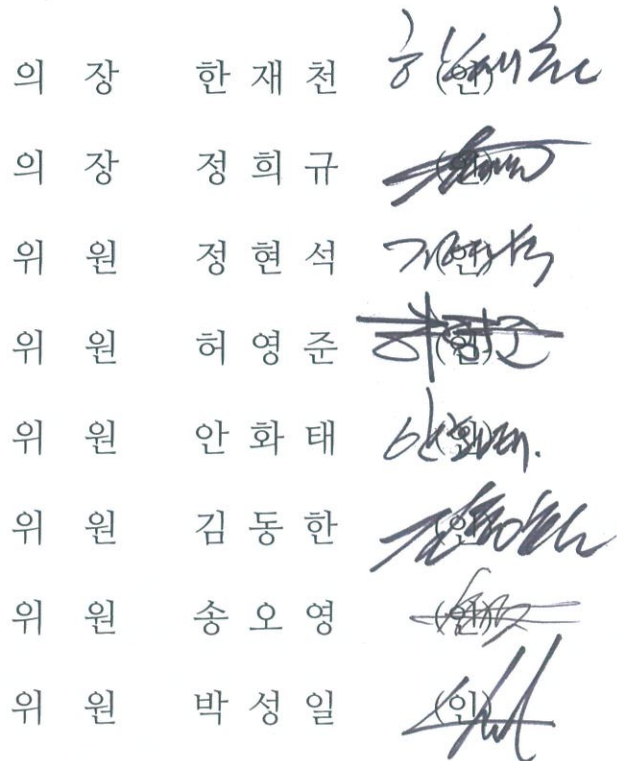 의 장 한 재 천 (인) 한재천
의 장 정 희 규 (인)
위 원 정 현 석 (인)
위 원 허 영 준 (인) 허영준
위 원 안 화 태 (인) 안화태.
위 원 김 동 한 (인) 김동한
위 원 송 오 영 (인)
위 원 박 성 일 (인)